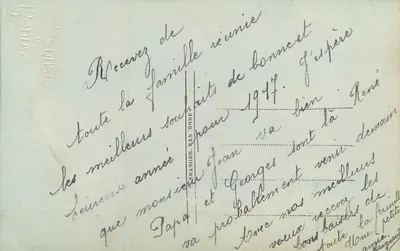 Recevez de
toute la famille réunie
les meilleurs souhaits de bonne et
heureuse année pour 1917. J'espère
que monsieur Jean va bien. René
Papa et Georges sont là
va probablement venir demain
Avec nos meilleurs
voeux recevez les
bons baisers de
toute la famille
Une petite
amie